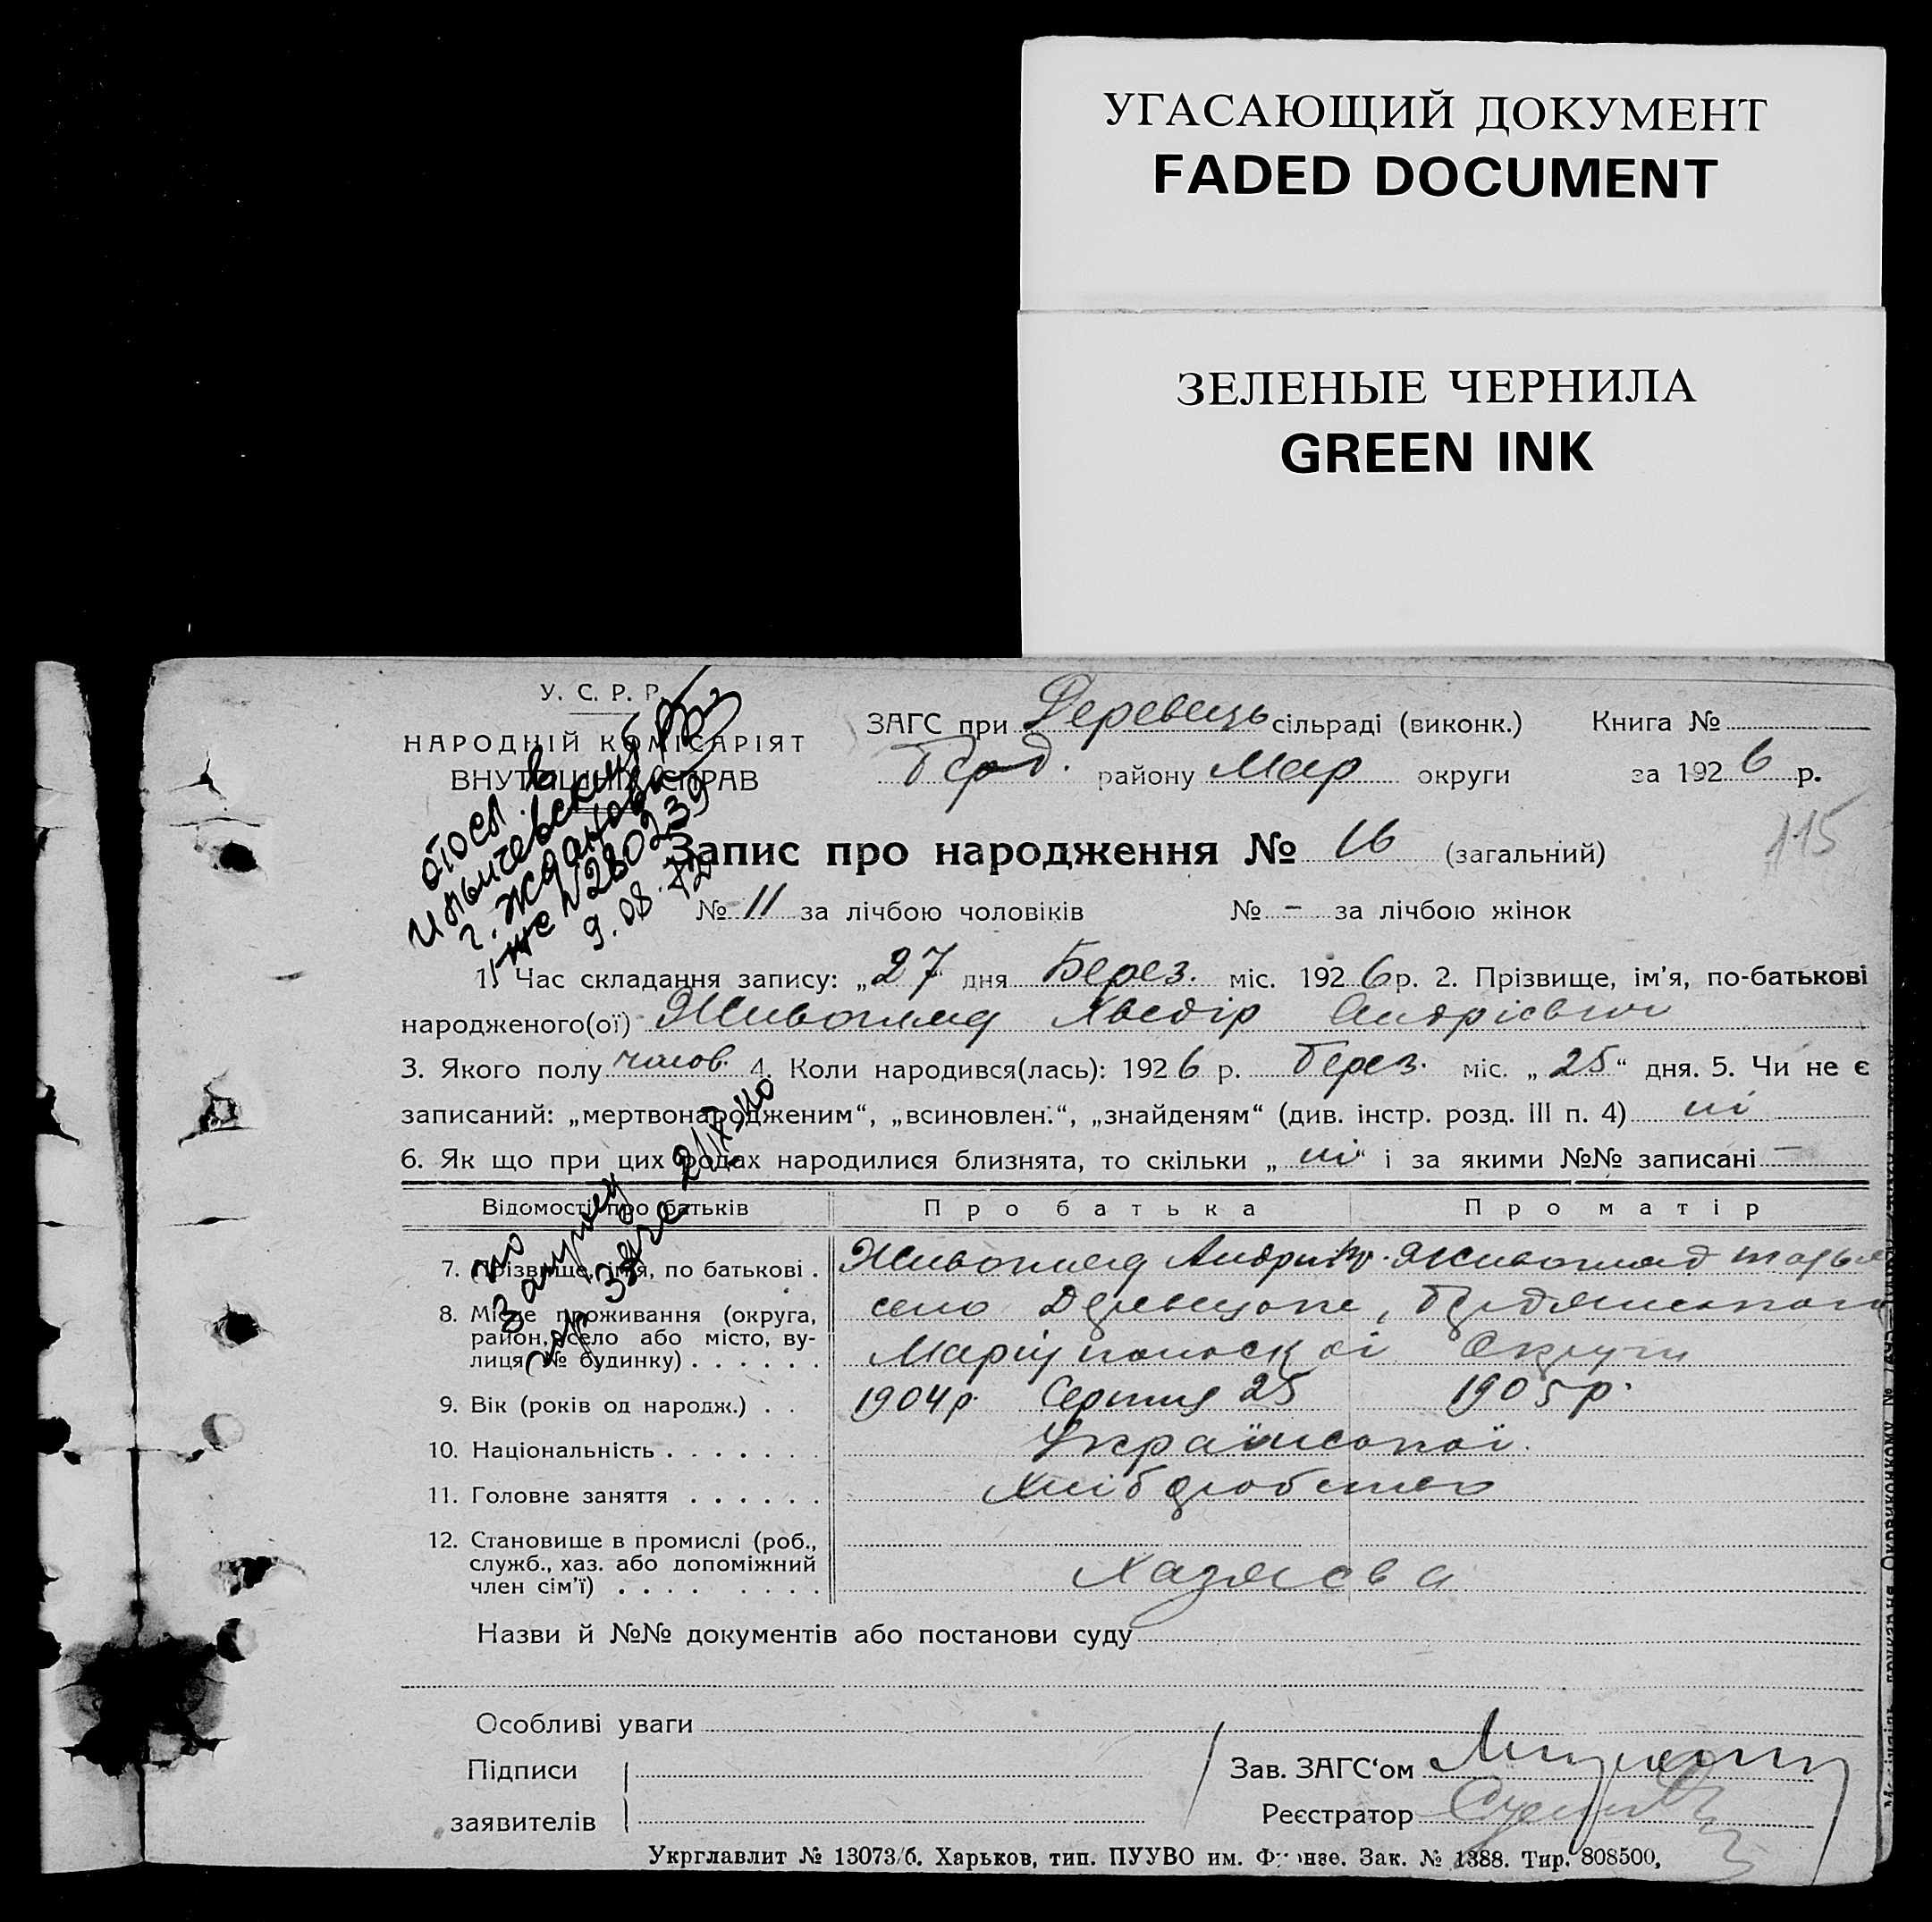 УГАСАЮЩИЙ ДОКУМЕНТ
FADED DOCUMENT
ЗЕЛЕНЫЕ ЧЕРНИЛА
GREEN INK
У. С. Р. Р.
НАРОДНІЙ КОМІСАРІЯТ
ВНУТРІШНІХ СПРАВ
ЗАГС при Деревець сільраді (виконк.) Книга №
району Мар округи за 1926 р.
115
г. Жданова
№ 280239
9.08.
Запис про народження № 16 (загальний)
№ 11 за лічбою чоловіків № - за лічбою жінок
1. Час складання запису: „27 дня Берез. міс. 1926 р. 2. Прізвище, ім'я, по-батькові
народженого(ої) Живогляд Хведір Андрієвич
3. Якого полу чолов. 4. Коли народився(лась): 1926 р. Берез. міс. „25“ дня. 5. Чи не є
записаний: „мертвонародженим“, „всиновлен.“, „знайденям“ (див. інстр. розд. III п. 4) ні
6. Як що при цих родах народилися близнята, то скільки „ні“ і за якими №№ записані —
Відомості про батьків Про батька Про матір
7. Прізвище, ім'я, по батькові . Живогляд Живогляд
8. Місце проживання (округа, село
район, село або місто, ву-
лиця, № будинку) . . . . . . Маріупольскої Округи
9. Вік (років од народж.) . . 1904 р. Серпня 25 1905 р.
10. Національність . . . . . . . Української
11. Головне заняття . . . . . . Хліборобство
12. Становище в промислі (роб.,
служб., хаз. або допоміжний
член сім'ї) . . . . . . . . Хазяєва
Назви й №№ документів або постанови суду
Особливі уваги
Підписи
заявителів
Зав. ЗАГС‘ом
Реєстратор
Укрглавлит № 13073/б. Харьков, тип. ПУУВО им. Фрунзе. Зак. № 1388. Тир. 808500,